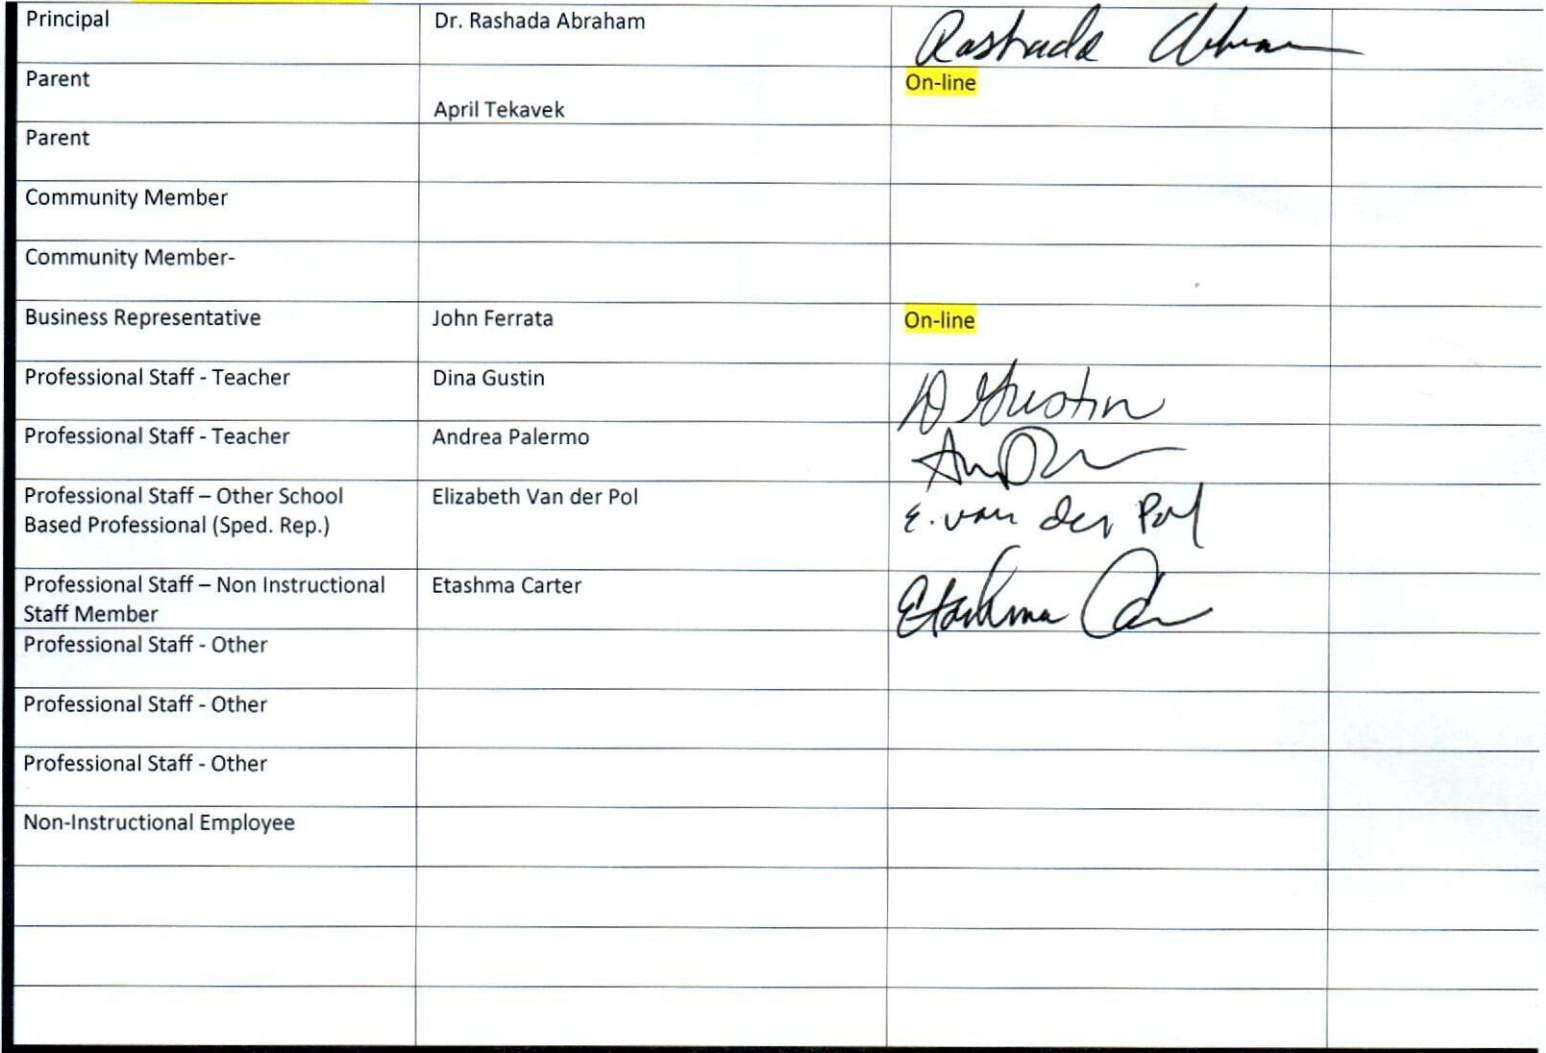 Principal Dr. Rashada Abraham Rashada
Parent On-line
April Tekavek
Parent
Community Member
Community Member-
Business Representative John Ferrata On-line
Professional Staff - Teacher Dina Gustin D Gustin
Professional Staff - Teacher Andrea Palermo
Professional Staff – Other School Elizabeth Van der Pol E. van der Pol
Based Professional (Sped. Rep.)
Professional Staff – Non Instructional Etashma Carter Etashma
Staff Member
Professional Staff - Other
Professional Staff - Other
Professional Staff - Other
Non-Instructional Employee